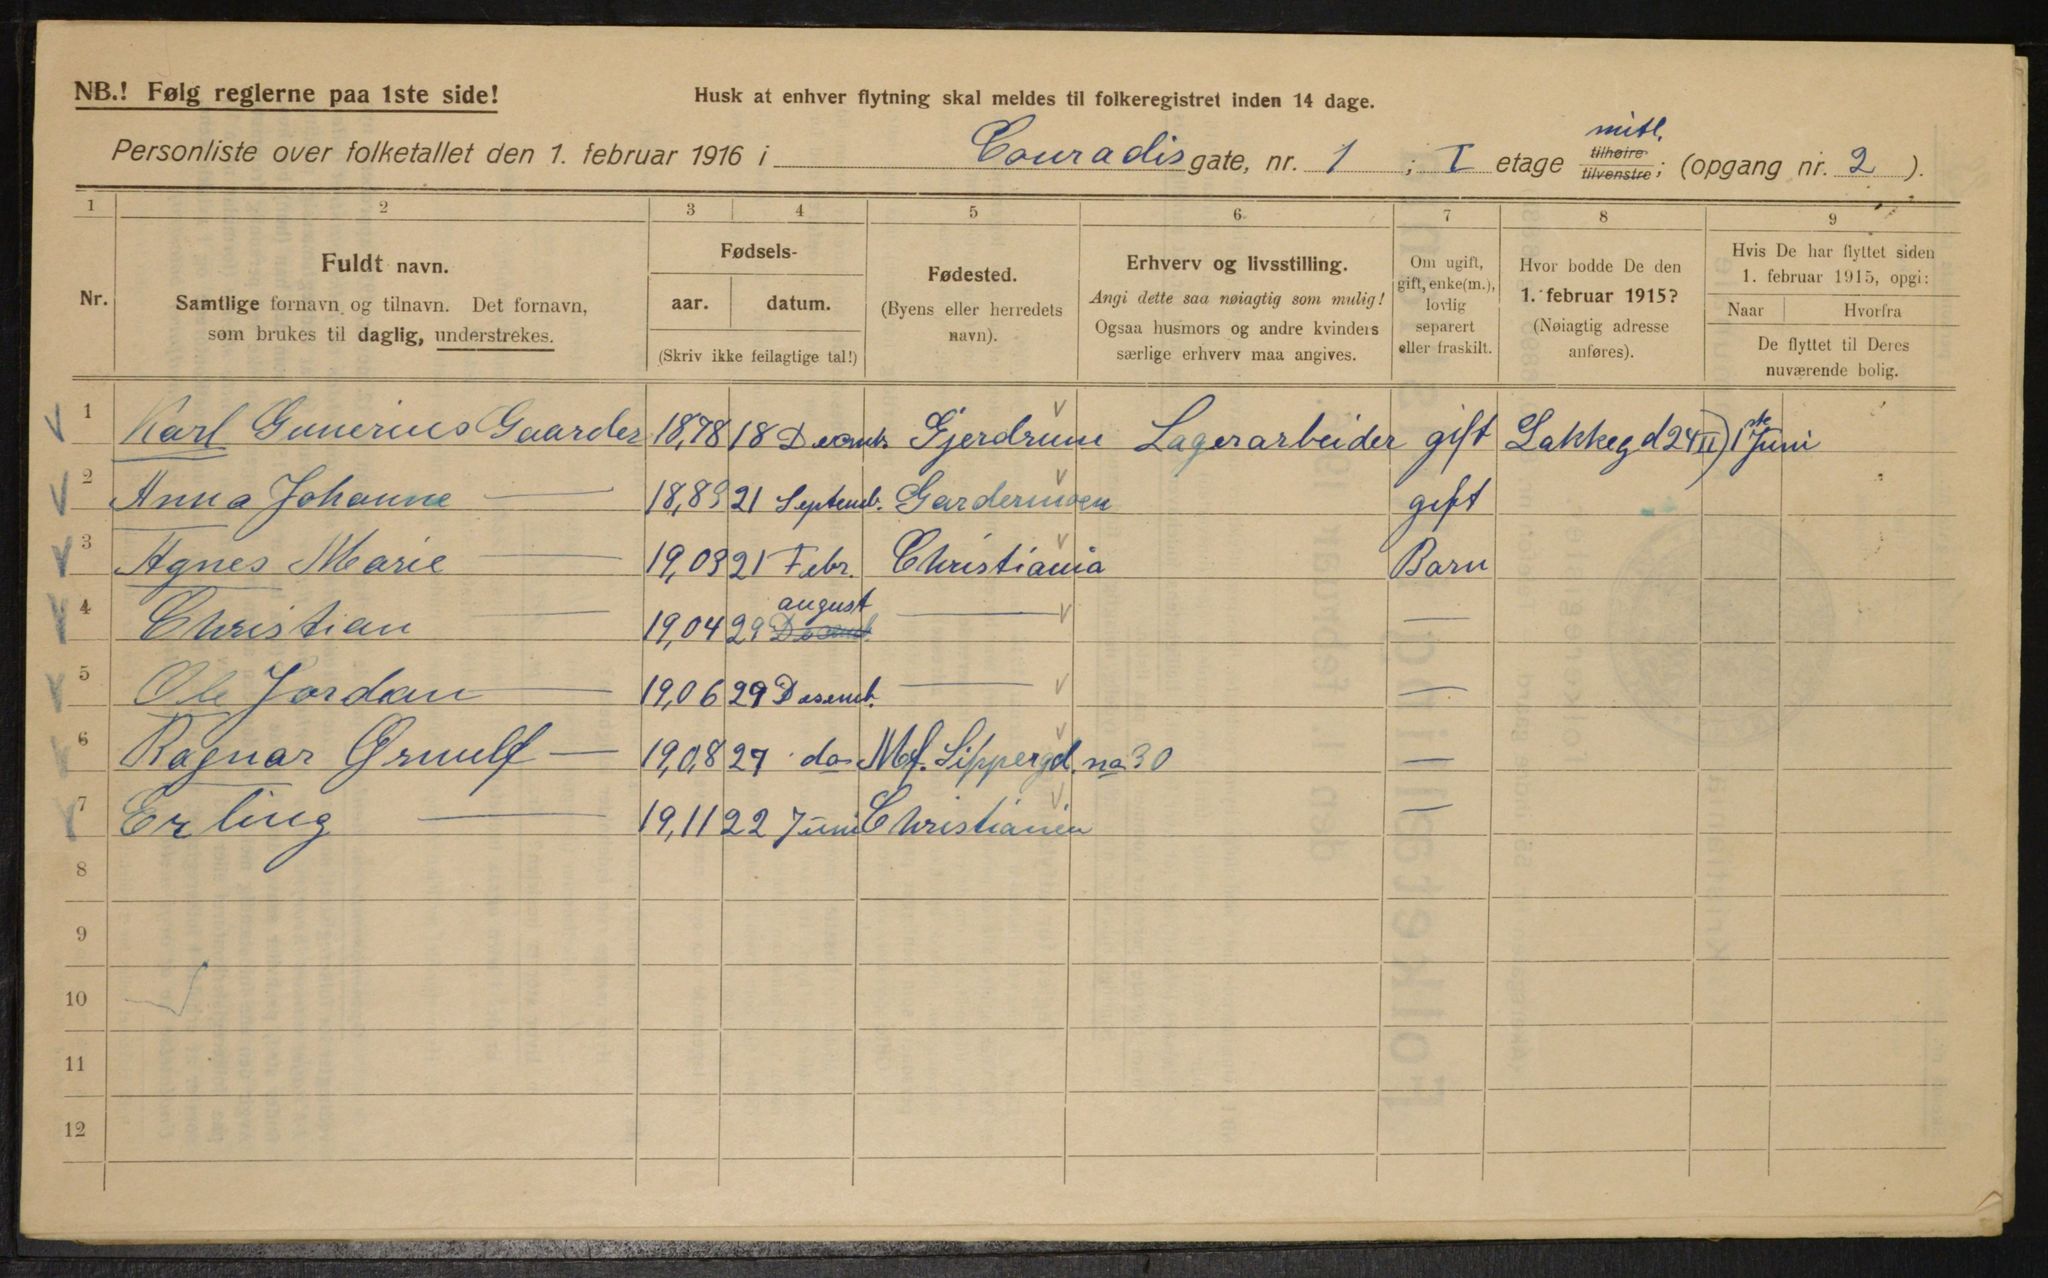 NB.! Følg reglerne paa 1ste side!
Husk at enhver flytning skal meldes til folkeregistret inden 14 dage.
mitl.
Personliste over folketallet den 1. februar 1916 i Conradis gate, nr. 1 ; I etage tilhøire tilvenstre; (opgang nr. 2 ).
1 2 3 4 5 6 7 8 9
Nr.
Fuldt navn.
Samtlige fornavn og tilnavn. Det fornavn,
som brukes til daglig, understrekes.
Fødsels-
aar. datum.
(Skriv ikke feilagtige tal!)
Fødested.
(Byens eller herredets
navn).
Erhverv og livsstilling.
Angi dette saa nøiagtig som mulig!
Ogsaa husmors og andre kvinders
særlige erhverv maa angives.
Om ugift,
gift, enke(m.),
lovlig
separert
eller fraskilt.
Hvor bodde De den
1. februar 1915?
(Nøiagtig adresse
anføres).
Hvis De har flyttet siden
1. februar 1915, opgi:
Naar Hvorfra
De flyttet til Deres
nuværende bolig.
1 Karl Gunerius Gaarder 1878 18 Decembr Gjerdrum Lagerarbeider gift Lakkegd 24 II) 1ste Juni
2 Anna Johanne — 18,89 21 Septemb. Gardermoen gift
3 Agnes Marie — 19,03 21 Febr. Christiania Barn
august
4 Christian — 19,04 29 Desemb. — —
5 Ole Jordan — 19,06 29 Desemb. — —
6 Ragnar Ørnulf — 19,08 27 do Mf. Lippergd. no 30 —
7 Erling — 19,11 22 Juni Christiania —
8
9
10
11
12